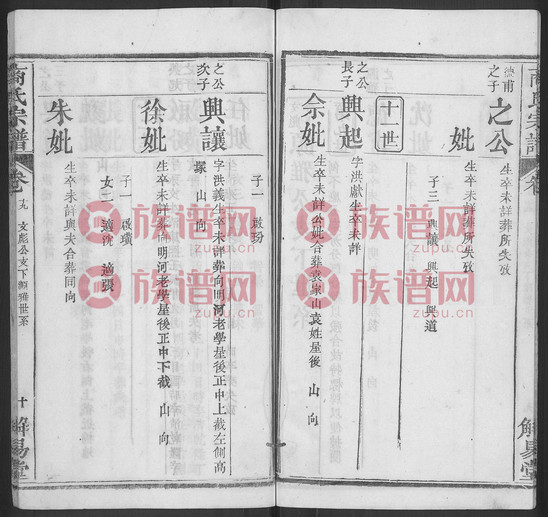 德甫之子
之公
生卒未詳葬所失攷
妣
生卒未詳葬所失攷
子三 興讓 興起 興道
十一世
之公長子
興起
字洪獻生卒未詳
佘妣
生卒未詳公妣合葬袁家山袁姓屋後 山 向
之公次子
興讓
子一 啟芴
字洪義生卒未詳葬向明河老學屋後正中上截左側高
塚 山 向
徐妣
生卒未詳葬向明河老學屋後正中下截 山 向
子一 啟璜
女二 適沈 適張
朱妣
生卒未詳與夫合葬同向
商氏宗譜
卷
十九 文彪公支下 世系
十
解易堂
商氏宗譜
卷
解易堂
族谱网
zupu.cn
族谱网
zupu.cn
族谱网
zupu.cn
族谱网
zupu.cn